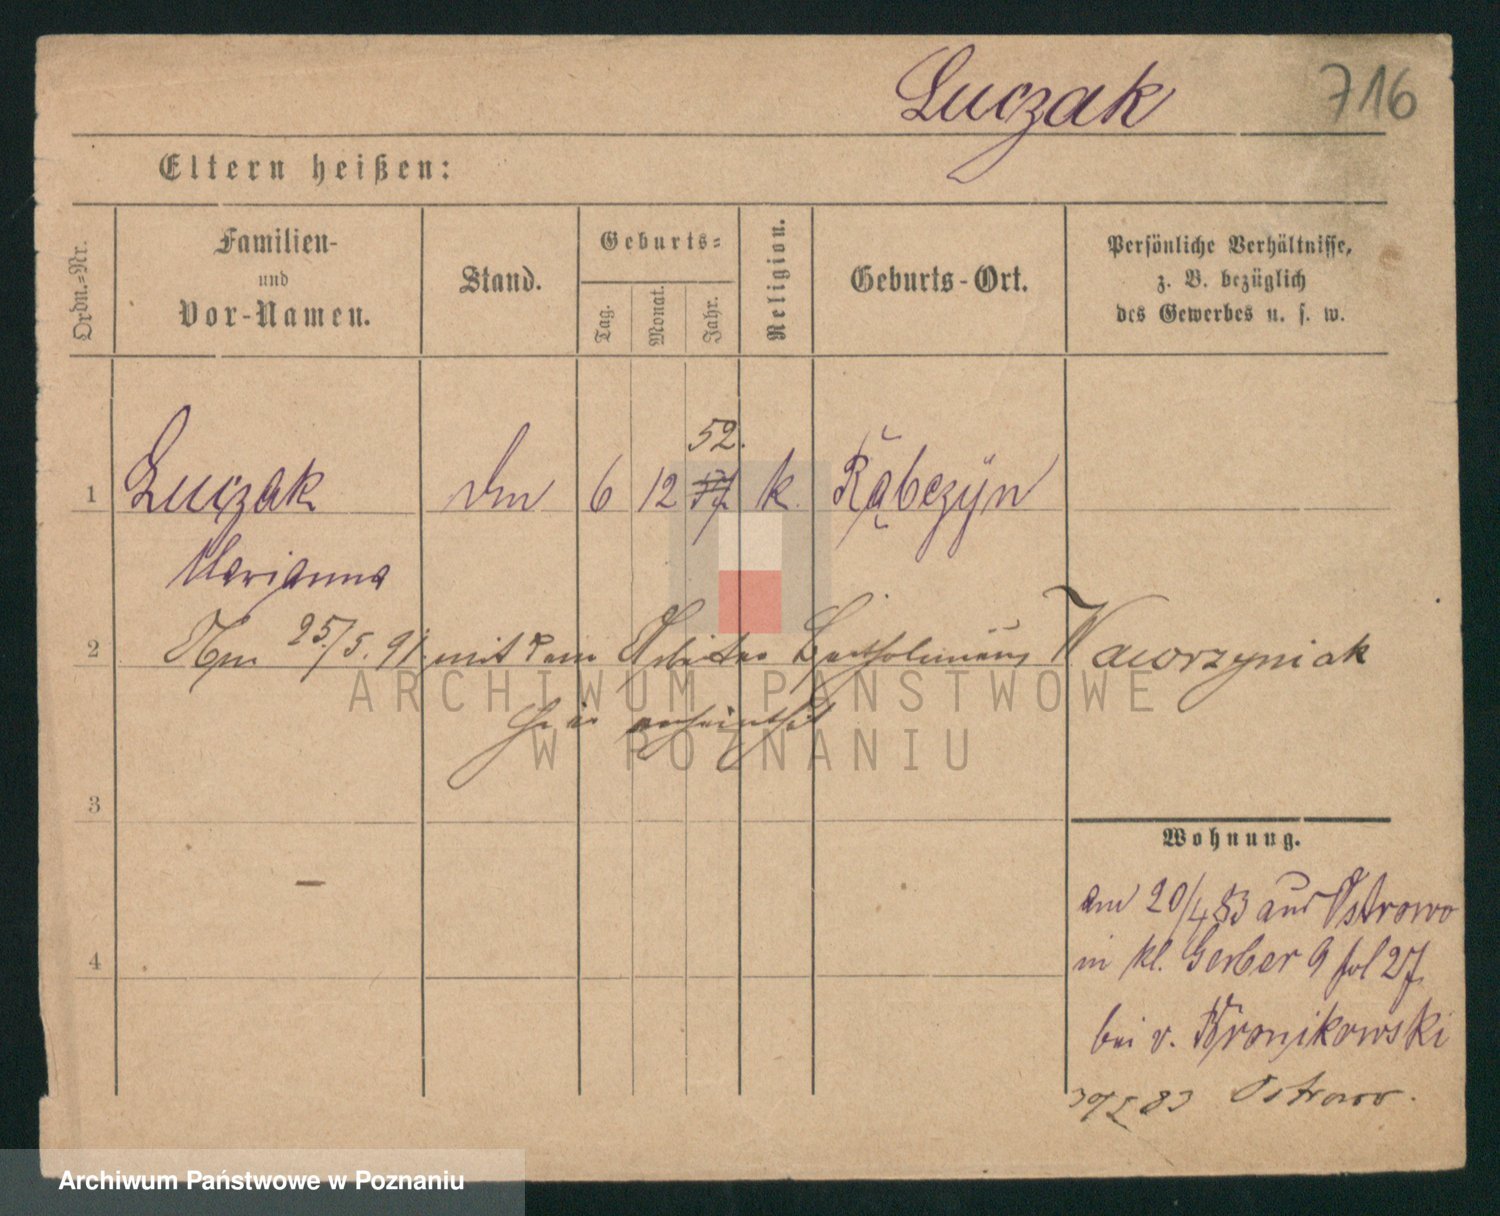 Luczak
716
Eltern heißen:
Ordn.-Nr.
Familien-
und
Vor-Namen.
Stand.
Geburts-
Tag.
Monat.
Jahr.
Religion.
Geburts-Ort.
Persönliche Verhältnisse,
z. B. bezüglich
des Gewerbes u. s. w.
52.
1 Luczak 6 12 57 k. Rąbczyn
Marianna
2 Am 25/5. 91 mit dem Arbeiter Bartholomäus Wawrzyniak
hier verheirathet
ARCHIWUM PAŃSTWOWE
W POZNANIU
3
Wohnung.
am 20/4 83 aus Ostrowo
4
in kl. Gerber 9 fol 27
bei v. Kronikowski
83 Ostrowo.
Archiwum Państwowe w Poznaniu